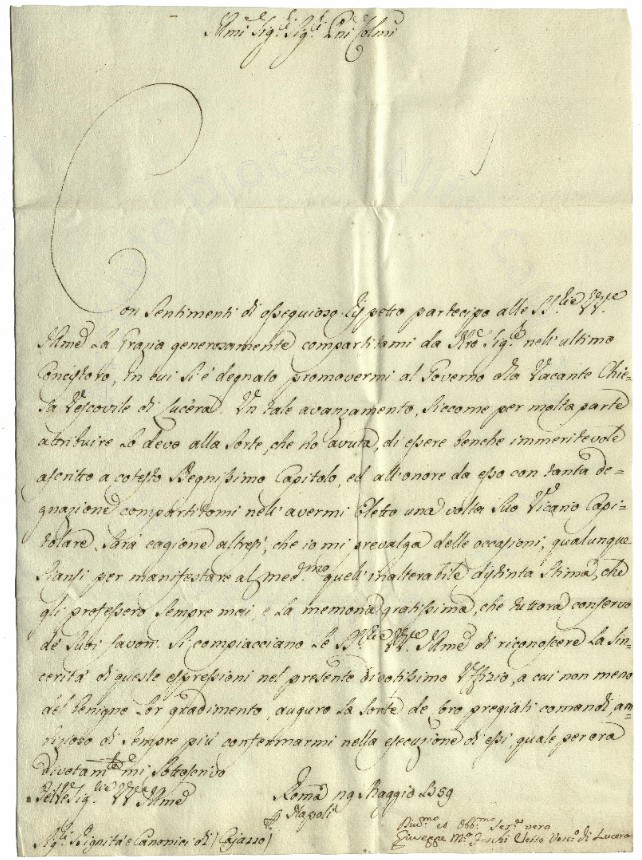 Illmi Sigri Sigri Pni Colmi
Con sentimenti di ossequioso rispetto partecipo alle SSrie VVre
Illme la Grazia generosamente compartitami da Nro Sigre nell'ultimo
Concistoro, in cui si è degnato promovermi al Governo della Vacante Chie-
sa Vescovile di Lucera. Un tale avanzamento, siccome per molta parte
attribuire lo devo alla sorte, che hò avuta, di essere benche immeritevole
ascritto a cotesto Degnissimo Capitolo, ed all'onore da esso con tanta de-
gnazione compartitomi nell'avermi eletto una volta suo Vicario Capi-
tolare. Sarà cagione altresì, che io mi prevalga delle occasioni, qualunque
siansi per manifestare al medmo quell'inalterabile distinta stima, che
gli professerò sempre mai, e la memoria gratissima, che tuttora conservo
de suoi favori. Si compiacciano le SSrie VVre Illme di riconoscere la sin-
cerità di queste espressioni nel presente divotissimo Uffizio, a cui non meno
del benigno lor gradimento, auguro la sorte de loro pregiati comandi, an-
sioso di sempre più confermarmi nella esecuzione di essi, quale per ora
divotamte mi sottoscrivo
Delle Sigrie VVre Illme
Roma 29 Maggio 1759
p Napoli
Sigri Dignità e Canonici di (Cajazzo)
Divmo ed Obbmo Serre vero
Giuseppe Ma Foschi Eletto Vesco di Lucera